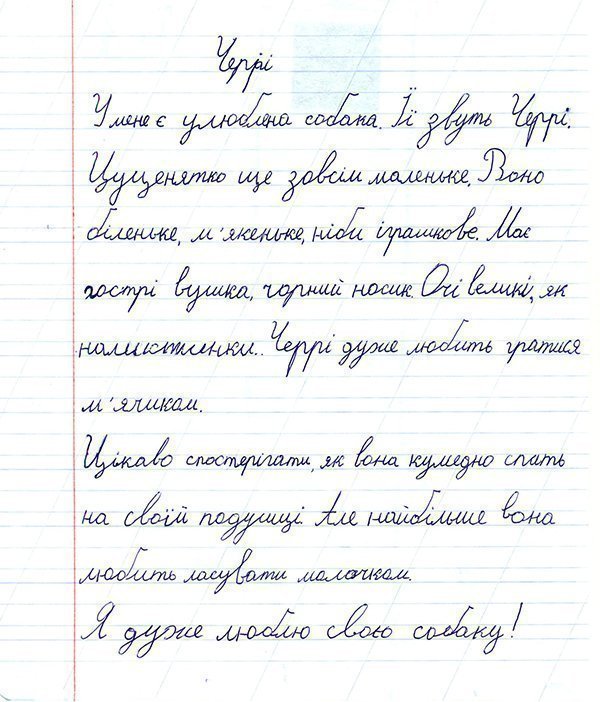 Черрі
У мене є улюблена собака. Її звуть Черрі.
Цуценятко ще зовсім маленьке. Воно
біленьке, м'якеньке, ніби іграшкове. Має
гострі вушка, чорний носик. Очі великі, як
намистинки.. Черрі дуже любить гратися
м'ячиком.
Цікаво спостерігати, як вона кумедно спить
на своїй подушці. Але найбільше вона
любить ласувати молочком.
Я дуже люблю свою собаку!